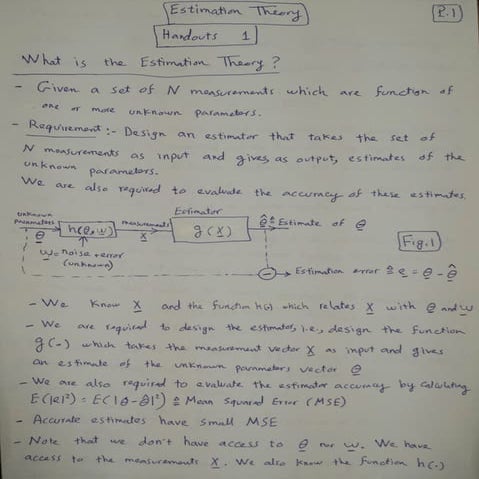 Estimation Theory
P.1
Handouts 1
What is the Estimation Theory?
- Given a set of N measurements which are function of
one or more unknown parameters.
- Requirement:- Design an estimator that takes the set of
N measurements as input and gives, as output, estimates of the
unknown parameters.
We are also required to evaluate the accuracy of these estimates.
unknown parameters
θ
h(θ,w)
measurements
X
Estimator
g(X)
θ̂ ≜ Estimate of θ
w=noise+error
(unknown)
Fig.1
Estimation error ≜ e = θ - θ̂
- We know X and the function h(·) which relates X with θ and w
- We are required to design the estimator, i.e., design the function
g(·) which takes the measurement vector X as input and gives
an estimate of the unknown parameters vector θ
- We are also required to evaluate the estimator accuracy by calculating
E(|e|²) = E(|θ-θ̂|²) ≜ Mean Squared Error (MSE)
- Accurate estimates have small MSE
- Note that we don't have access to θ nor w. We have
access to the measurements X. We also know the function h(·)